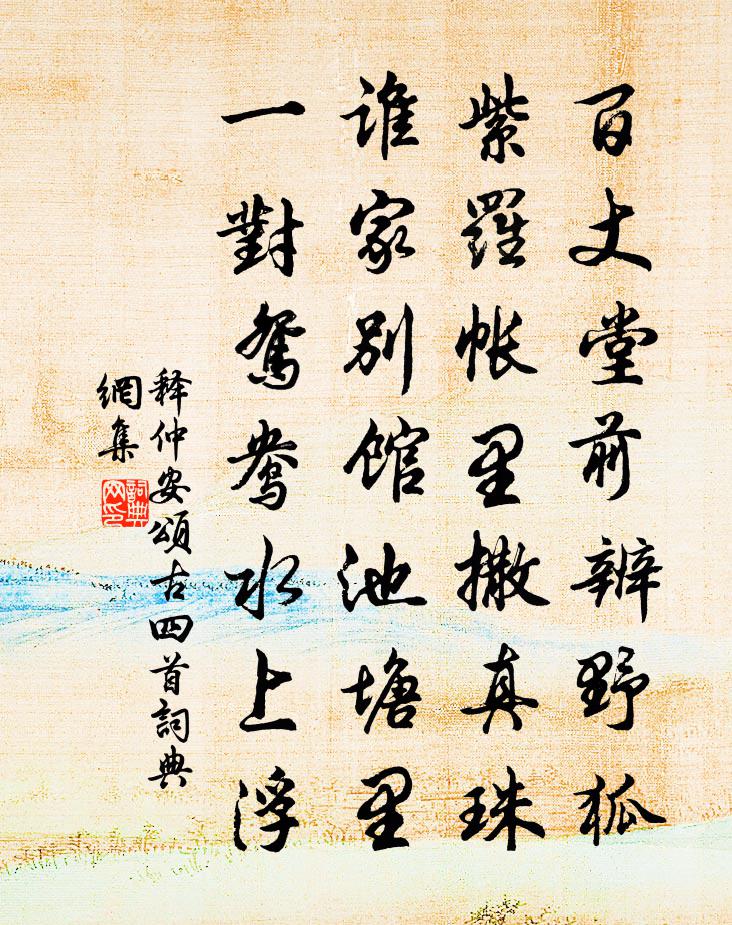 百丈堂前辨野狐
紫羅帐里撒真珠
谁家别馆池塘里
一對鴛鴦水上浮
释仲安頌古四首詞典
網集
詞典
网印